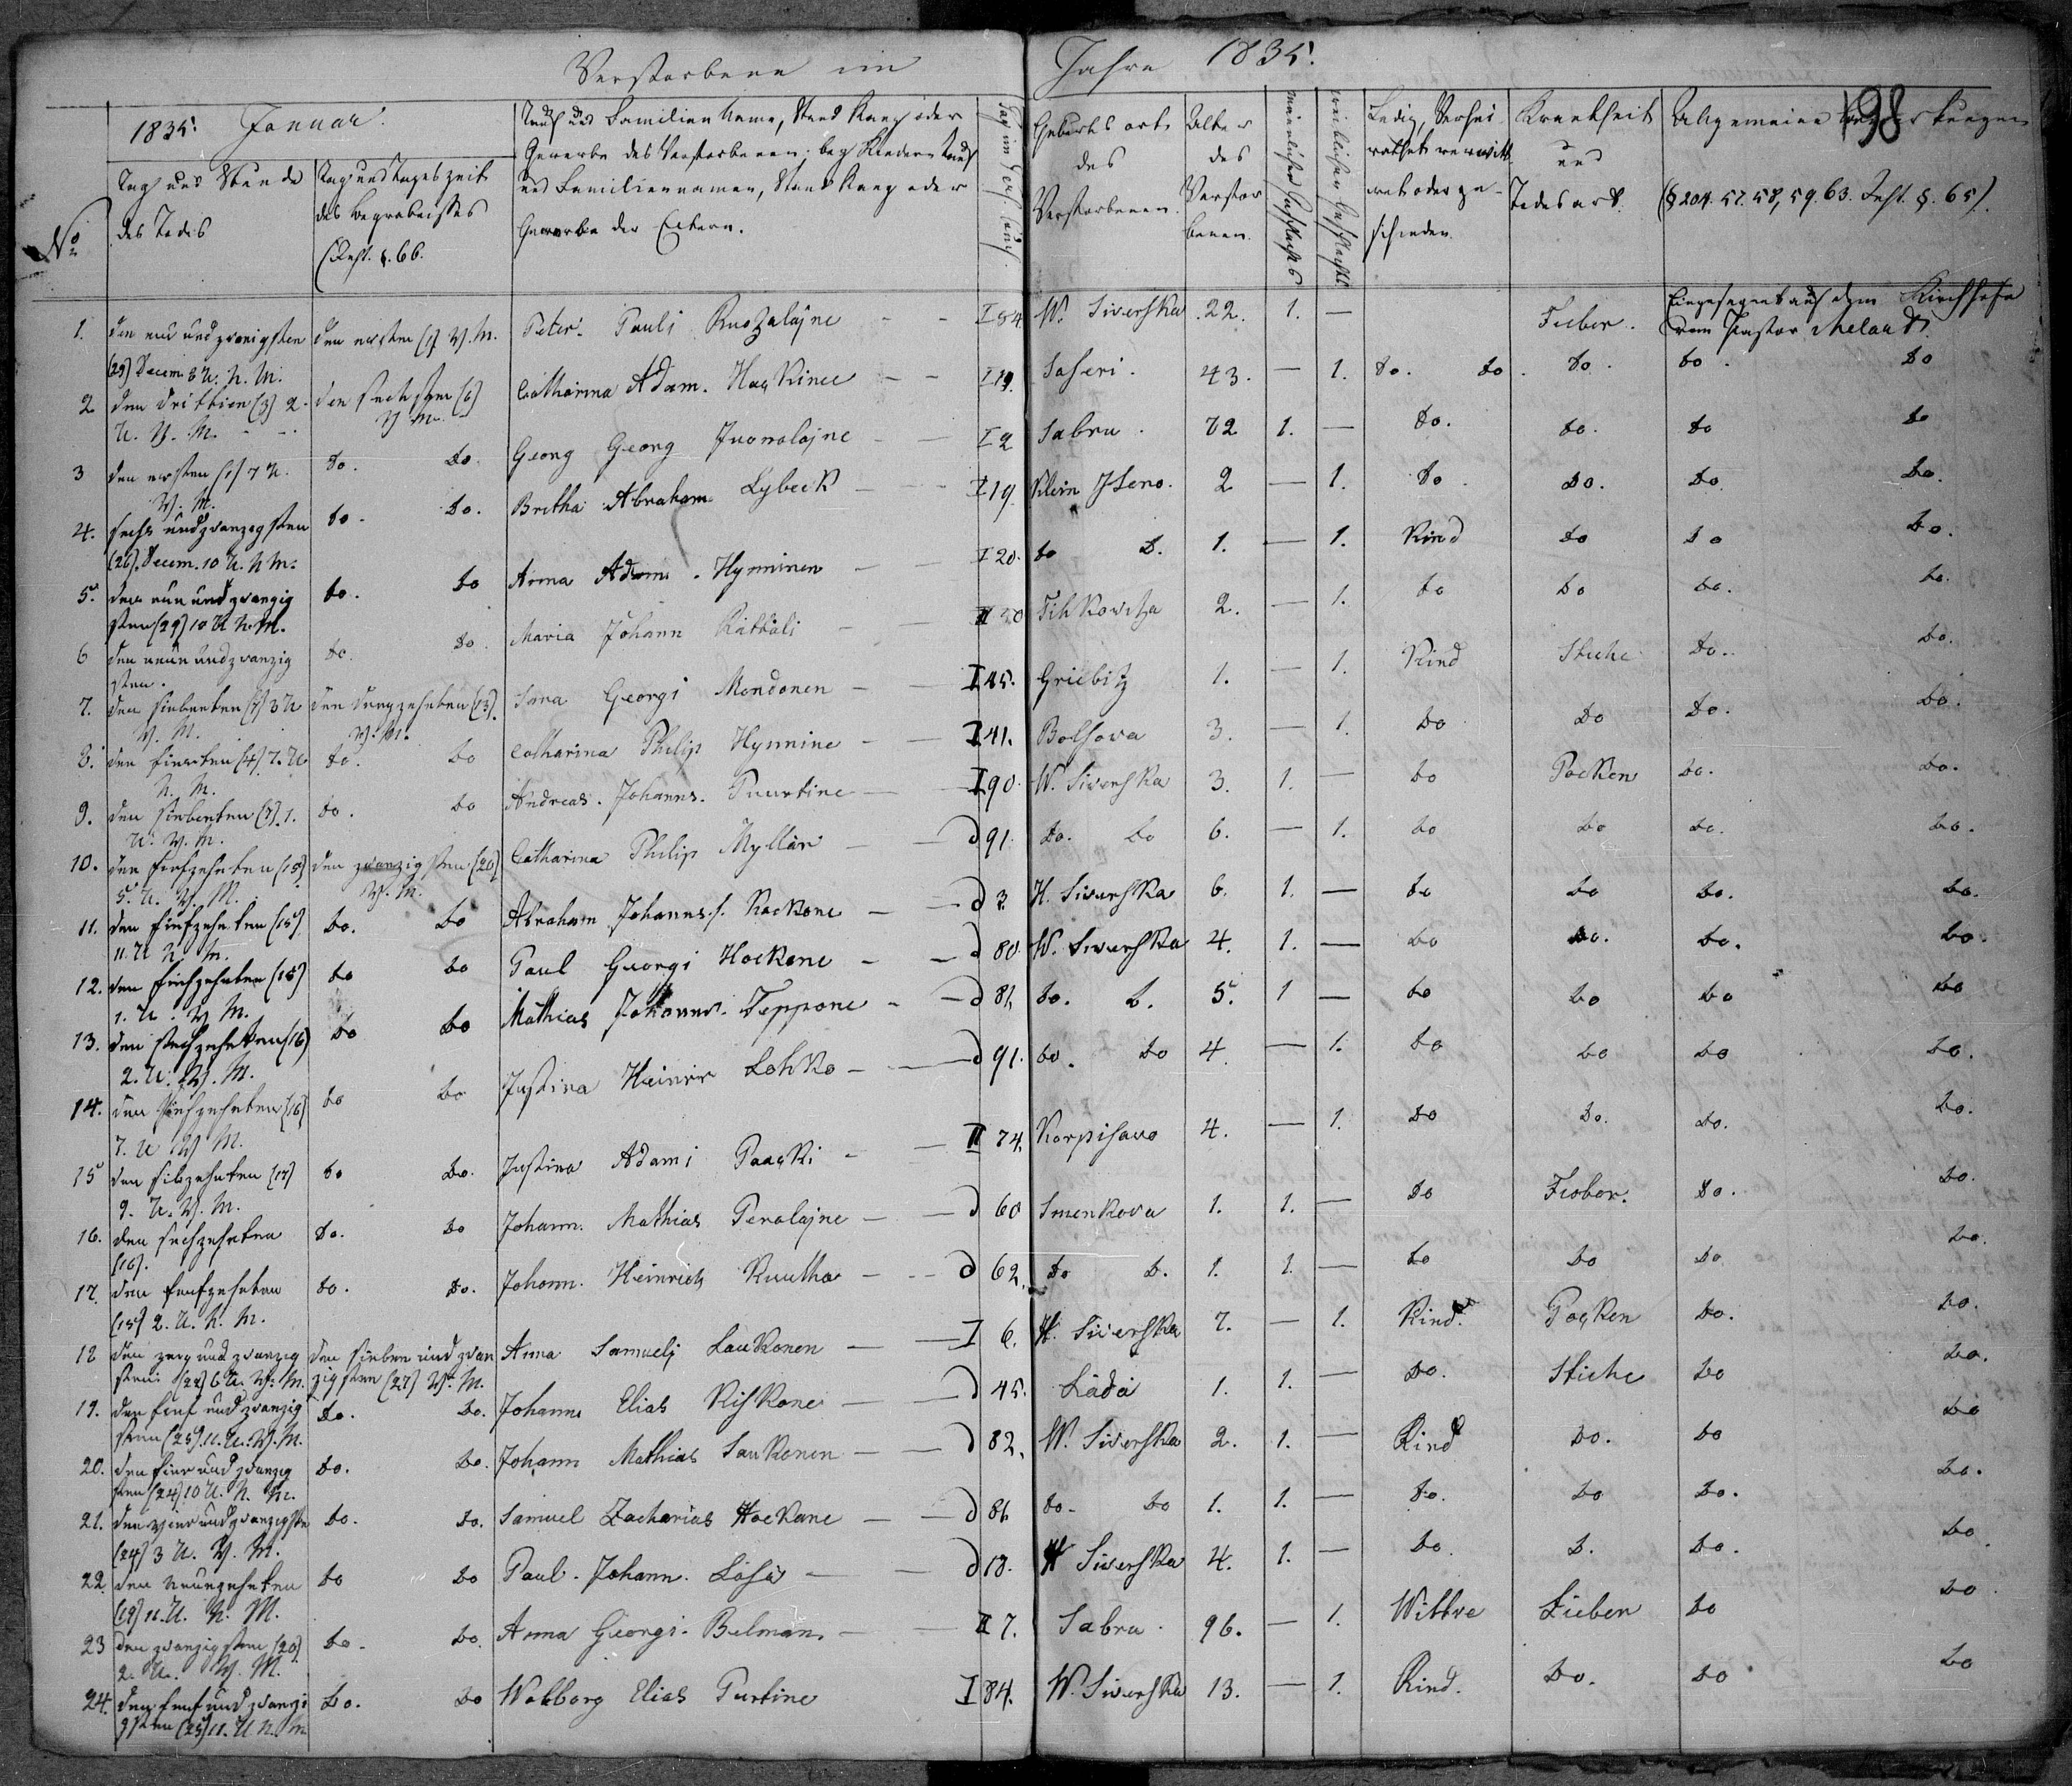 Verstorbene im Jahre 1835.
198
1835. Januar.
No
Tag und Stunde des Todes
Tag und Tageszeit des Begräbnisses
§. 66.
Tauf und Familien Name, Stand Rang oder
Gewerbe des Verstorbenen; bey Kindern Tauf
und Familiennamen, Stand Rang oder
Gewerbe der Eltern.
Geburts ort des Verstorbenen.
Alter des Verstorbenen.
männlichen Geschlechts
weiblichen Geschlechts
Ledig, Verheirathet verwittwet oder geschieden.
Krankheit und Todesart.
Allgemeine
(§ 204. 57. 58, 59. 63. §. 65).
1. den (29) Decem. 3 U. N. M. den ersten (1) V. M. Peter Pauli I 84 W. Siverska 22. 1. — Fieber. Eingesegnet auf dem Kirchhofe
vom Pastor
2 den dritten (3) 2. U. N. M. den sechsten (6) V. M. Catharina Adam. Hackinee I 19. Saseri. 43. — 1. do. do. do. do. do
3 den ersten (1) 7 U. V. M. do. do. Georg Georg I 2 Sabru. 72 1. — do. do. do do
4. sechs und zwanzigsten (26). Decem. 10 U. N M. do. do. Britha Abraham Lybeck I 19 Klein 2 — 1. do do. do. do.
5. den neun und zwanzigsten (29) 10 U N. M. do. do Anna Adami. Hynninen I 20. do d. 1. — 1. Kind do do do.
6 den neun und zwanzigsten. do. do. Maria Johann Rättäli II 30 Tihkowitza 2. — 1. do do do. do.
7. den siebenten (7) 3 U V. M. den dreyzehnten (13). V. M. Sara Georgi Mondonen I 45. Griebitz 1. — 1. Kind Stiche do. do.
8. den vierten (4) 7. U. N. M. do. do Catharina Philip Hynnine I 41. Bolsova 3. — 1. do do do. do.
9. den siebenten (7). 1. U. V. M. do. do Andreas. Johanns. Puurtine I 90. W. Siverska 3. 1. — do Pocken do. do.
10. den funfzehnten (15) 5. U. V. M. den zwanzigsten (20) V. M. Catharina Philip Myllär d 91. do. do 6. — 1. do do do. do.
11. den funfzehnten (15) 11. U N. M. do. do Abraham Johanns. Kockone d 3. H. Siverska 6. 1. — do do do. do.
12. den funfzehnten (15) 1. U. V M. do do Paul Georgi Hockone d 80. W. Siverska 4. 1. — do do. do. do.
13. den sechzehnten (16) 2. U. V. M. do do Mathias Johanns. Teppone d 81. do. d. 5. 1 — do do do do
14. den sechzehnten (16) 7. U V M. do do Justina Heinrr Lohko d 91. do. do 4. — 1. do do do do.
15 den sibzehnten (17) 9. U. V. M. do do. Justina Adami Paacki II 74. Korpisavo 4. — 1. do do. do. do.
16. den sechzehnten (16). do. do Johann. Mathias Peralajne d 60 Smenkova 1. 1. — do Fieber. do. do.
17. den funfzehnten (15) 2. U. N. M. do. do. Johann. Heinrich Kuutha d 62. do d. 1. 1. — do do do do.
18 den zwey und zwanzigsten (22) 6 U. V. M. den sieben und zwanzigsten (27) V. M. Anna Samuelj Laukonen I 6. H. Siverska 7. — 1. Kind. Pocken do. do.
19. den funf und zwanzigsten (25). 11. U. V. M. do. do. Johann Elias Kiskone d 45. Lädä 1. 1. — do. Stiche do do.
20. den vier und zwanzigsten (24) 10 U. N. M. do. do. Johann Mathias Saukonen d 82. W. Siverska 2. 1. — Kind do. do do
21. den vier und zwanzigsten (24) 3 U. V. M. do. do. Samuel Zacharias Hockane d 86. do. do 1. 1. — do. do do. do.
22. den neunzehnten (19) 11. U. N. M. do do Paul. Johann. d 18. H Siverska 4. 1. — do. d. do. do
23 den zwanzigsten (20) 2. U. V. M. do. do. Anna Georgi. Belman II 7. Sabru. 96. — 1. Wittve Fieber do do
24. den funf und zwanzigsten (25) 11. U N. M do. do Walborg Elias Purtine I 84. W. Siverska 13. — 1. Kind. do. do do